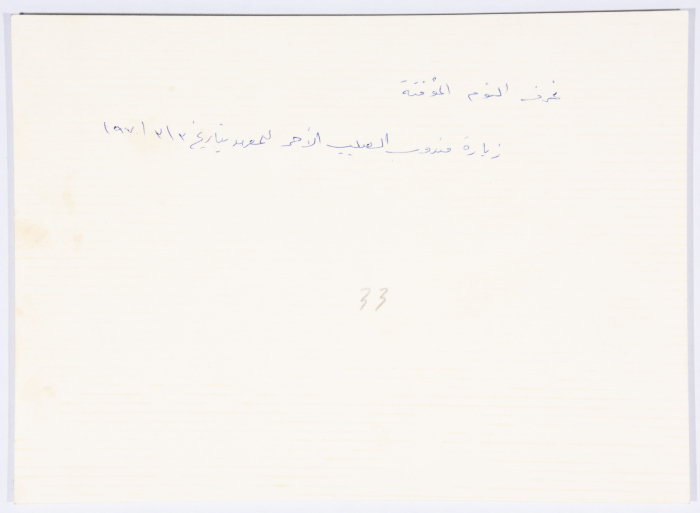 غرف النوم المؤقتة
زيارة مندوب الصليب الأحمر للمعهد بتاريخ ٣/٣/١٩٧٠
33